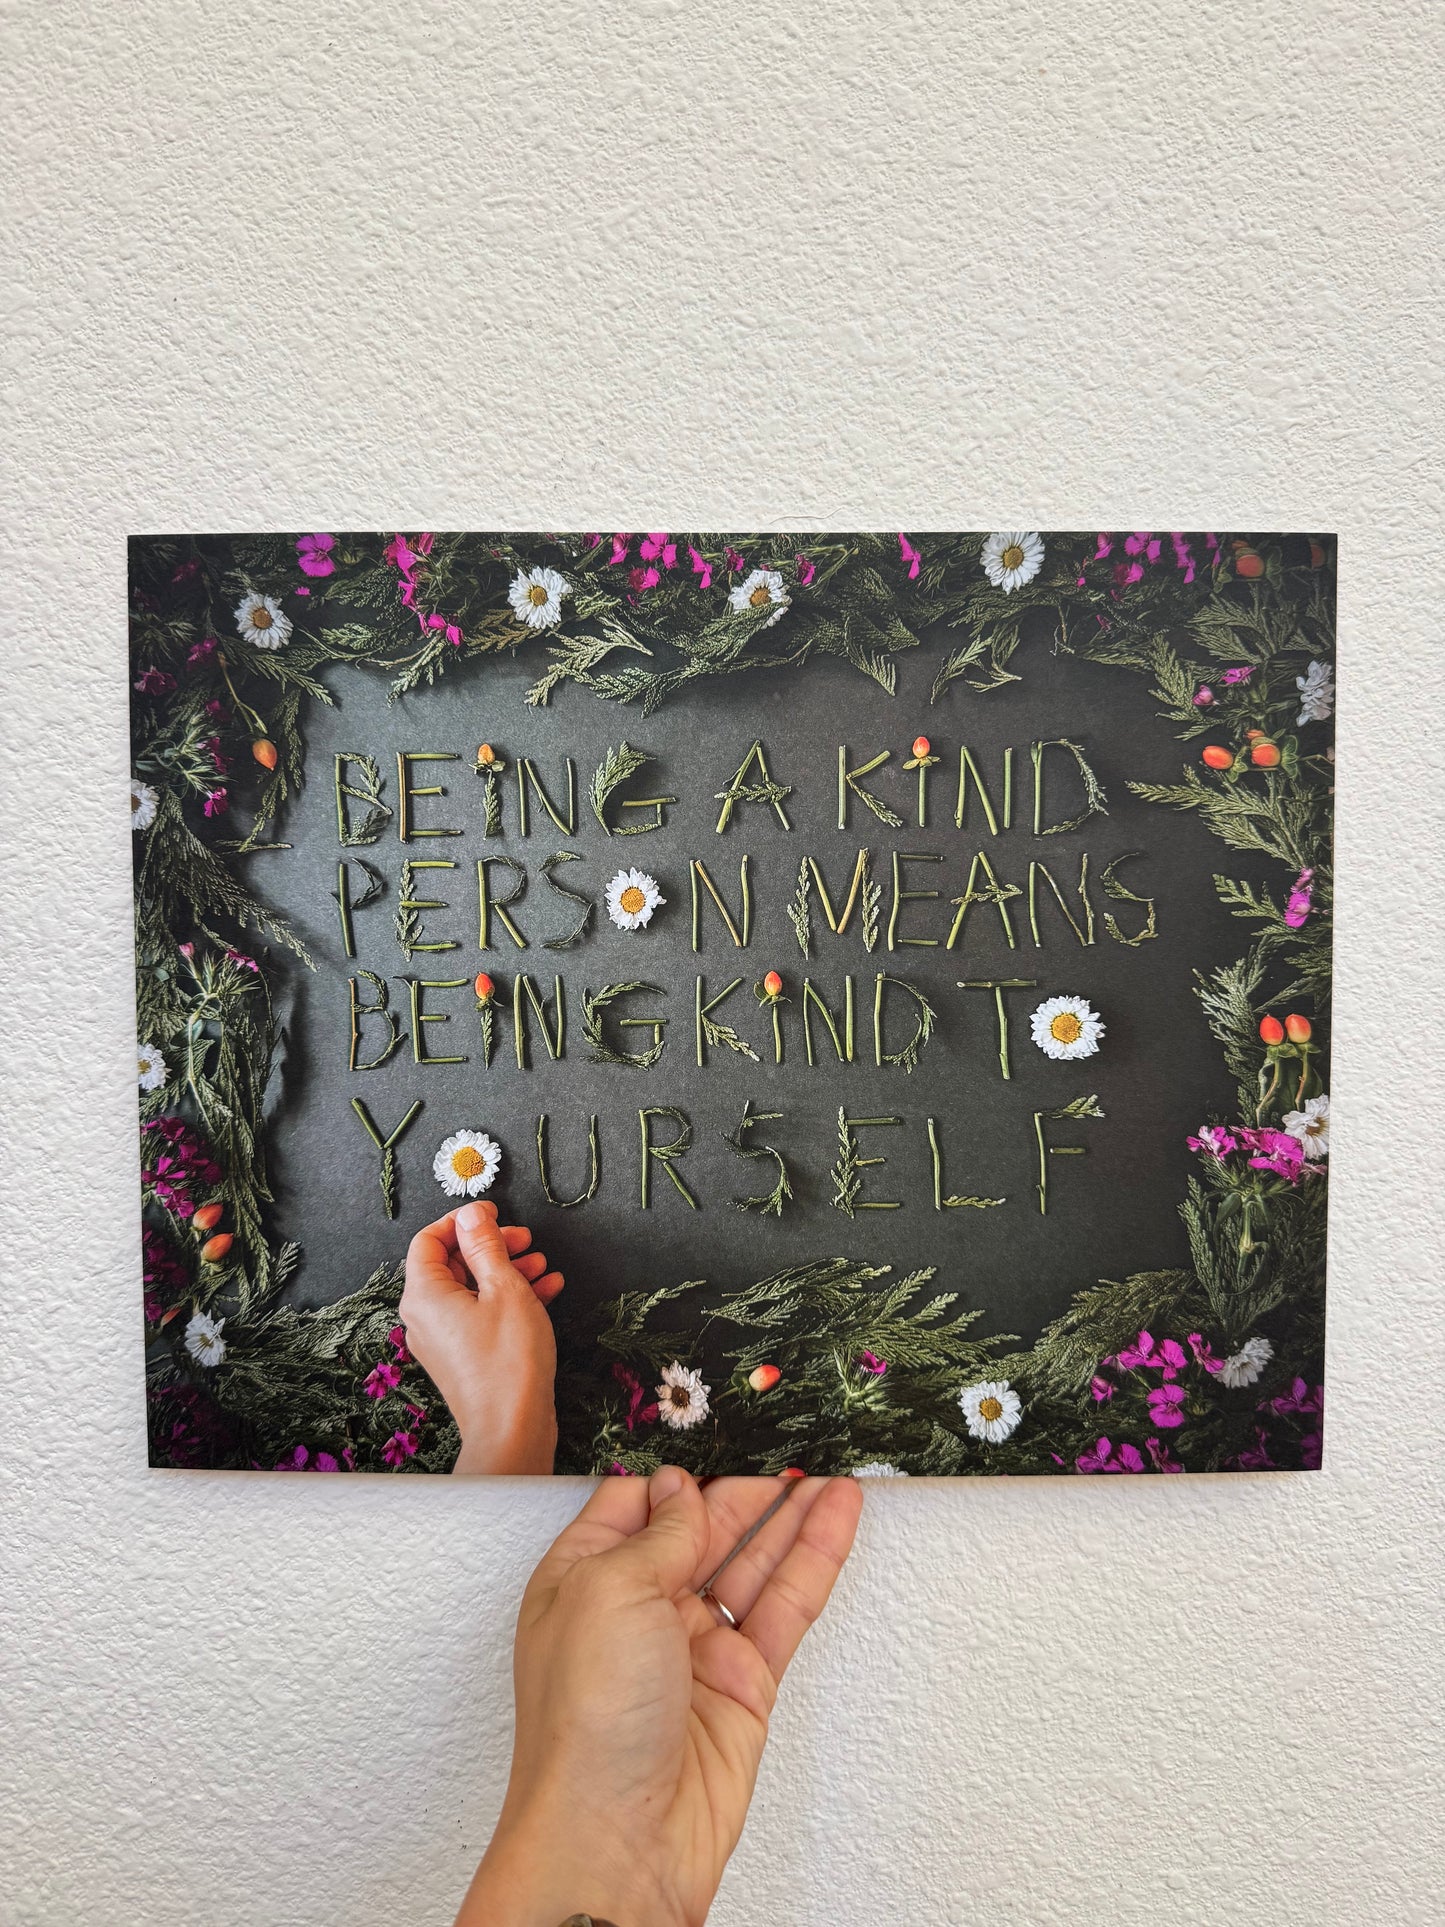 BEiNG A KiND
PERSON MEANS
BEiNG KiND TO
YOURSELF